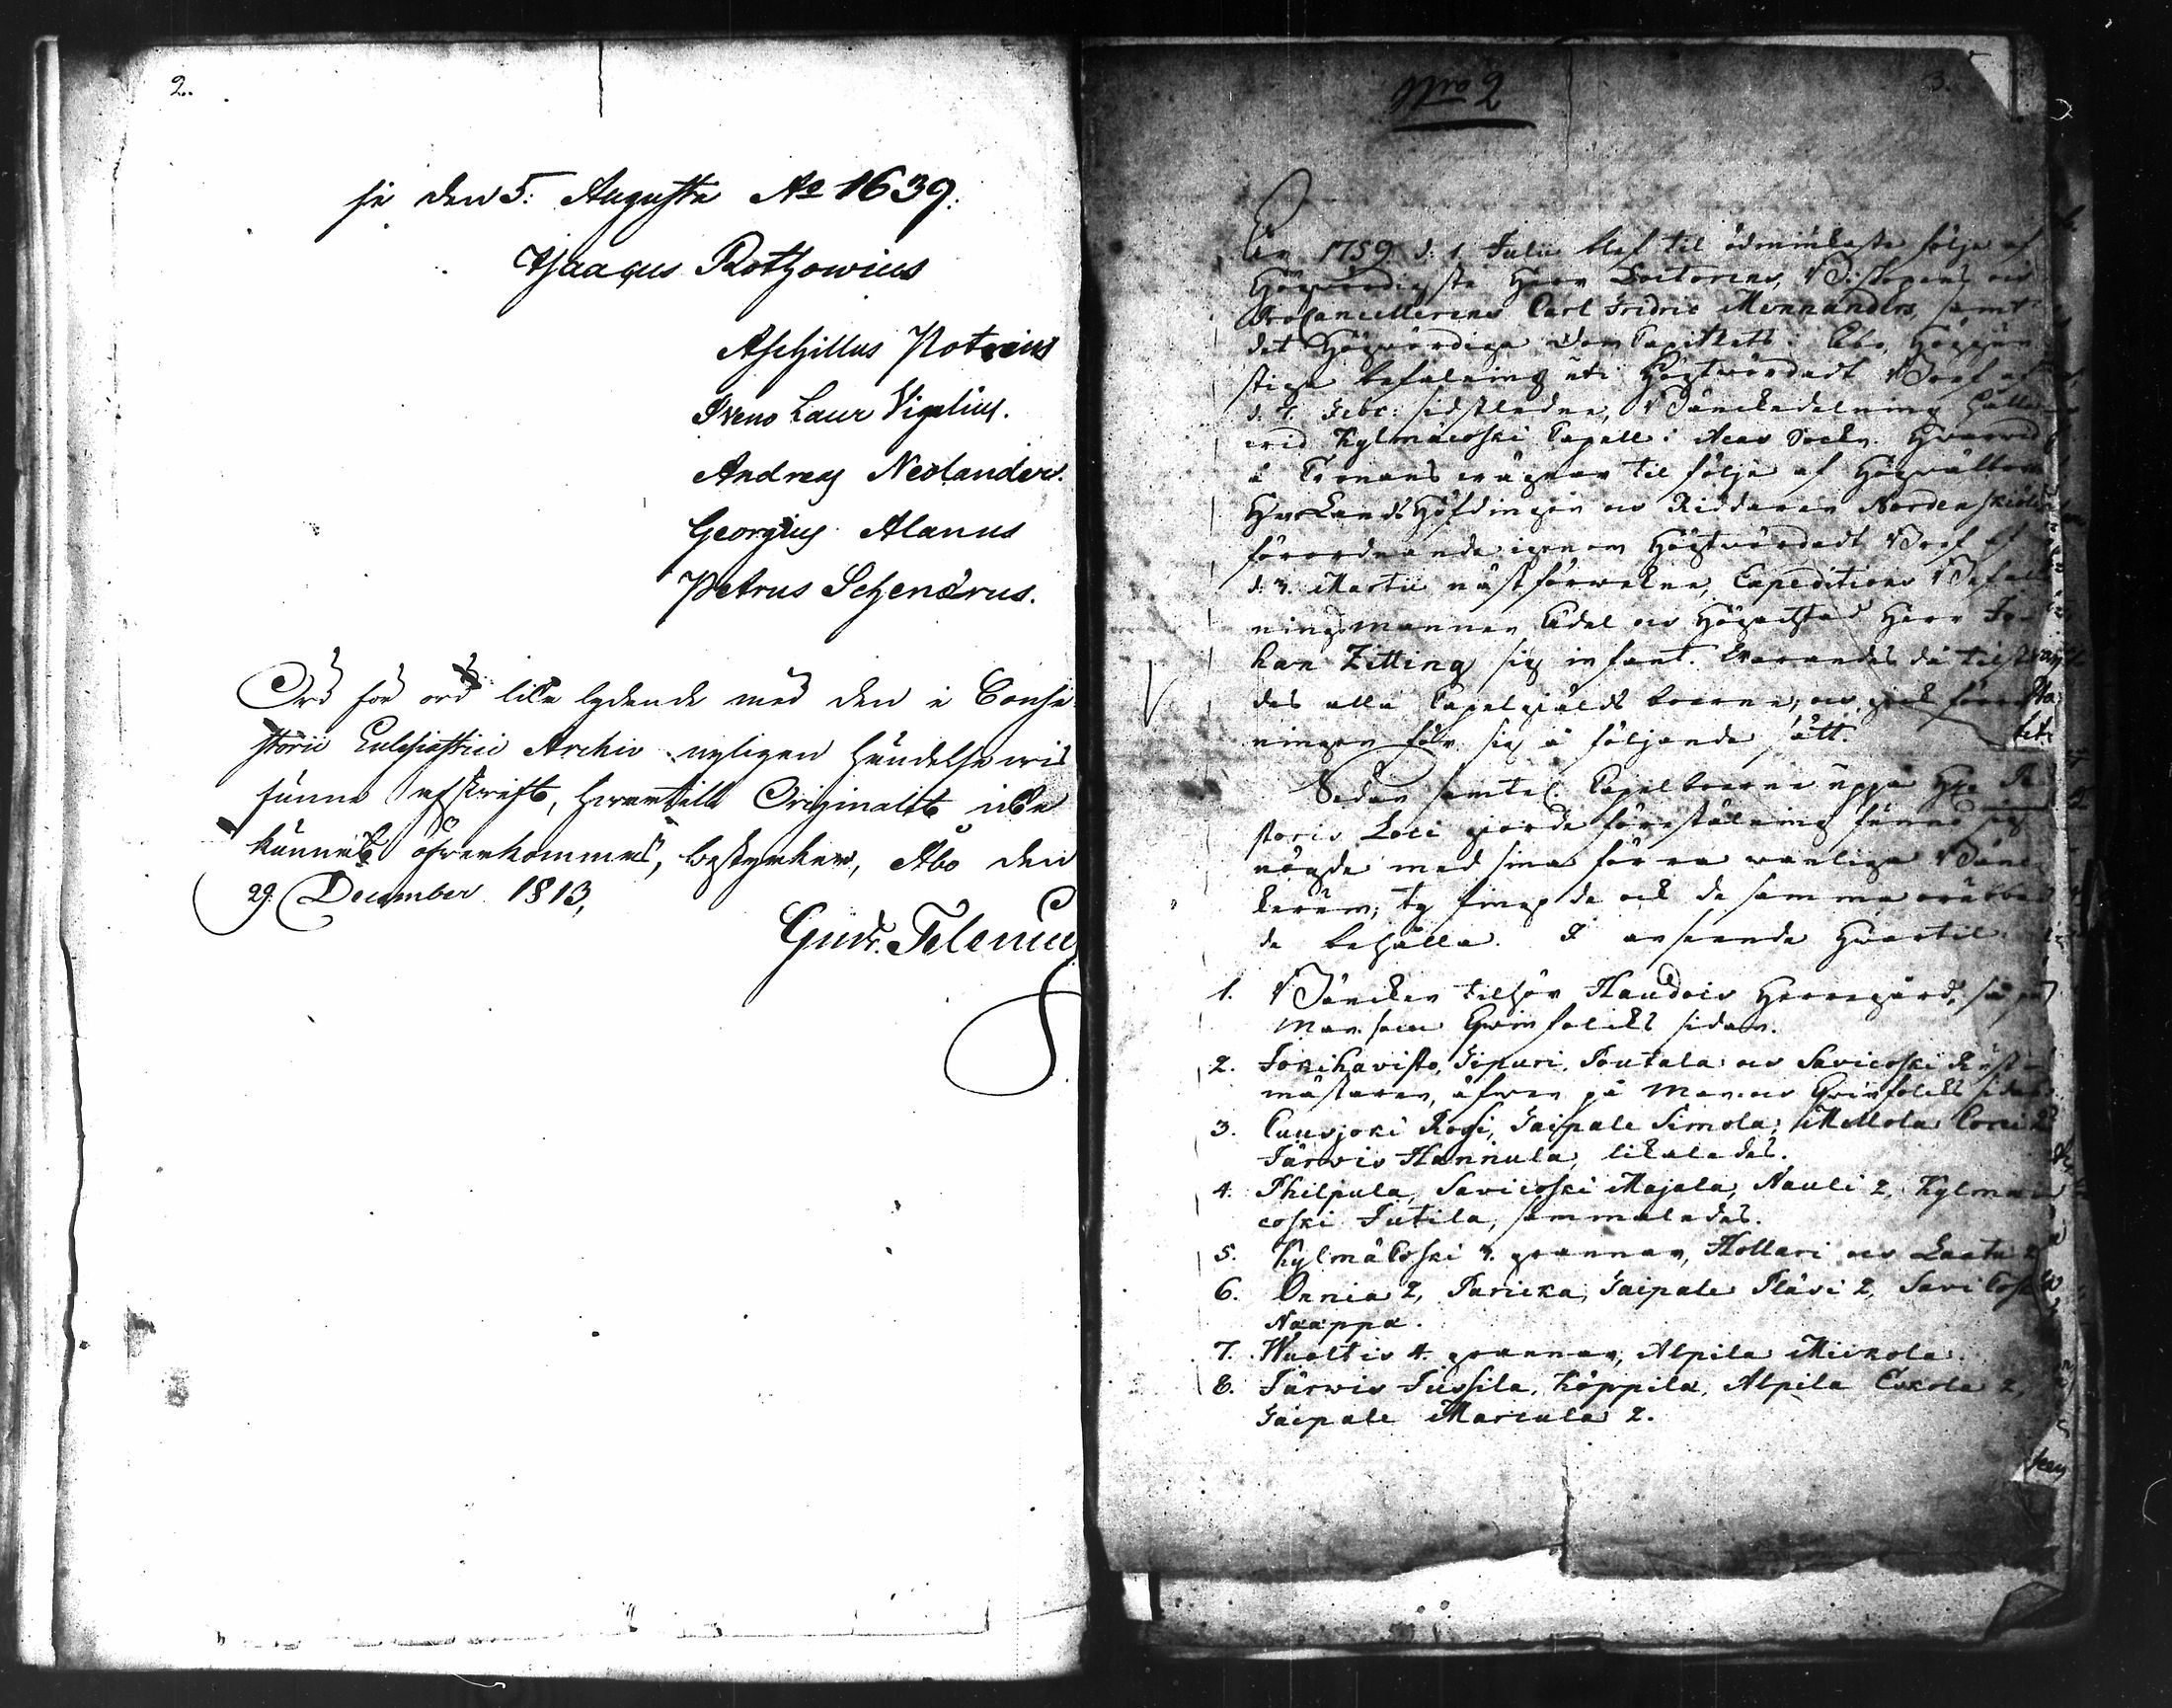 2.
je den 5. Augusti Aº 1639.
Isaacus Rothowius
Aschillus Petreius
Sveno Laur Vigelius.
Andreas Neolander.
Georgius Alanus
Petrus Schenærus.
Ord för ord lika lydande med den i Consi
storii Ecclesiastici Archiv nyligen händelsevis
funne afskrift, hwartill Originalet icke
kunnat öfwerkommas, bestyrker, Åbo den
29 December 1813,
Gust.
Nro 2
3.
År 1759 d. 1. Julii blef til ödmiukaste följe af
Högwördigste Herr Doctorens, Biskopens och
ProCancellerens Carl Fridric Mennanders, samt
det Högwördiga Dom Capitlets i Åbo, Höggun
stiga befalning uti Högtwördadt Bref af
d. 7. Febr. sidstledne, Bänckedelning hållen
wid Kylmäcoski Capell i Akas Sockn. Hwarwid
å Cronans wägnar til följe af Högwälborne
Hr LandsHöfdingen och Riddaren Nordenskiölds
förordnande igenom Högtwördadt Bref af
d. 3. Martii nästförwekne, Expeditions Befall
ningsmannen Ädel och Högachtad Herr Jo
han Zitting sig infant. Warandes då tilstä
des alla Capelgiälds boerne, och gick förrätt
ningen för sig å följande sätt.
Sedan samtel. Capelboerne uppå Hrr Pa
storis Loci giorde föreställning funno sig
nögde med sina förra wanliga Bänc
kerum; ty fingo de ock de samma orubba
de behålla. I anseende hwartil
1. Bäncken tilhör Haudois Herregård, så på
Man som Qwinfolcks sidan.
2. Jokihavisto, Sipuri, Poutala och Savicoski Rust
mästaren, äfwen på Man och Qwinfolcks sidan
3. Cuusjoki Rosi, Taipale Simola, Mellola 2
Järwis Hannula, likaledes.
4. Philpula, Savicoski Majala, Nauli 2, Kylmä
coski Jutila, sammaledes.
5. Kylmäcoski 3. grannar, Hollari och Laatu 2
6. Onnia 2, Taricka, Taipale Pläsi 2, Savicoski
Naappa.
7. Wualtis 4. grannar, Alpila Mickola.
8. Järwis Jussila, Köppilä, Alpila Eskola 2,
Taipale Marcula 2.